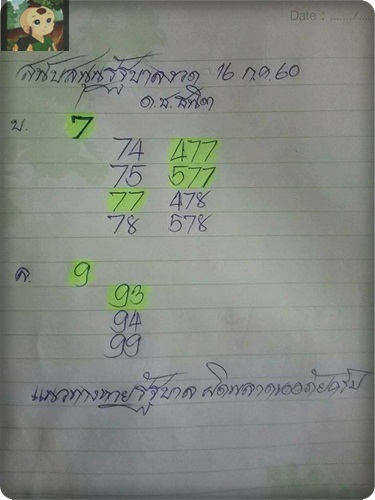 Date : ....../......
สนับสนุนรัฐบาลงวด 16 ก.ค.60
ด.ช.
บ. 7
74 477
75 577
77 478
78 578
ล. 9
93
94
99
แนวทางหวยรัฐบาล ผิดพลาดขออภัยครับ